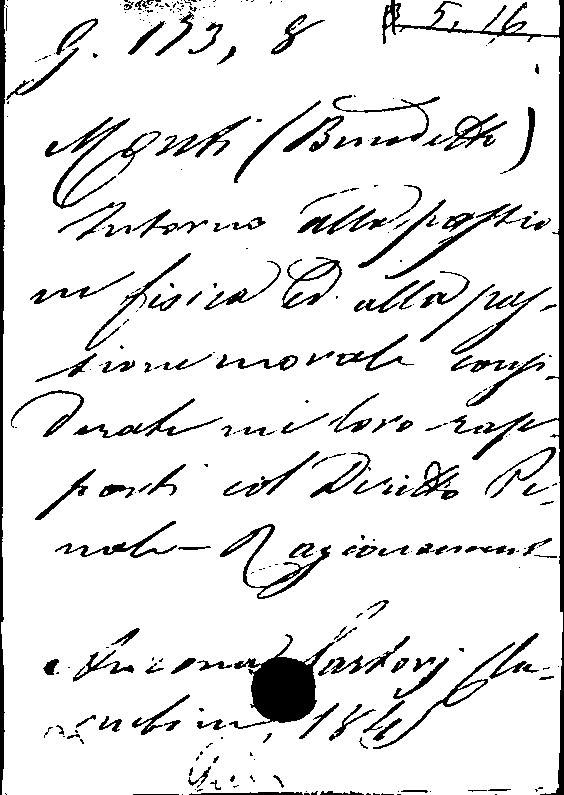 G. 133, 8
B. 5. 16.
Monti (Benedetto)
Intorno alla passio-
ne fisica ed alla pas-
sione morale consi-
derate nei loro rap-
porti col Diritto Pe-
nale - Ragionament
Ancona Sartorj Che-
rubini, 1845